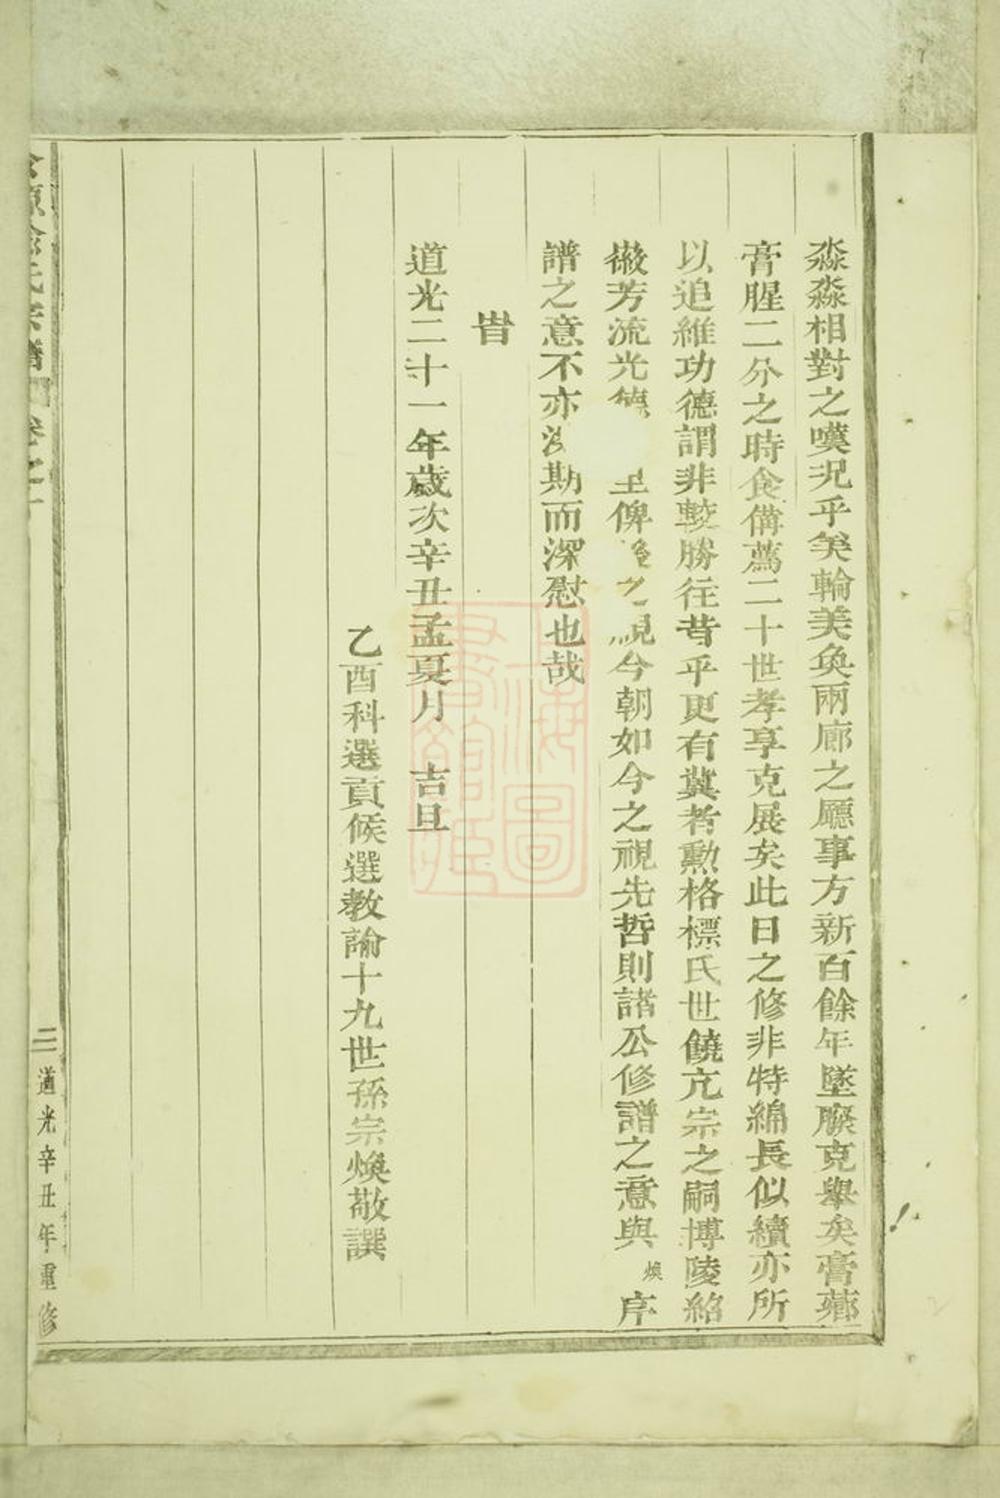 淼淼相對之嘆況乎美輪美奐兩廊之廳事方新百餘年墜廢克舉矣膏薌
膏腥二分之時食備薦二十世孝享克展矣此日之修非特綿長似續亦所
以追維功德謂非較勝往昔乎更有冀者勲格標氏世饒亢宗之嗣博陵紹
徽芳流光德 里俾後之視今朝如今之視先哲則諸公修譜之意與煥序
譜之意不亦 期而深慰也哉
旹
道光二十一年歲次辛丑孟夏月 吉旦
乙酉科選貢候選教諭十九世孫宗煥敬譔
氏宗譜 卷之
三 道光辛丑年重修
上海圖書館